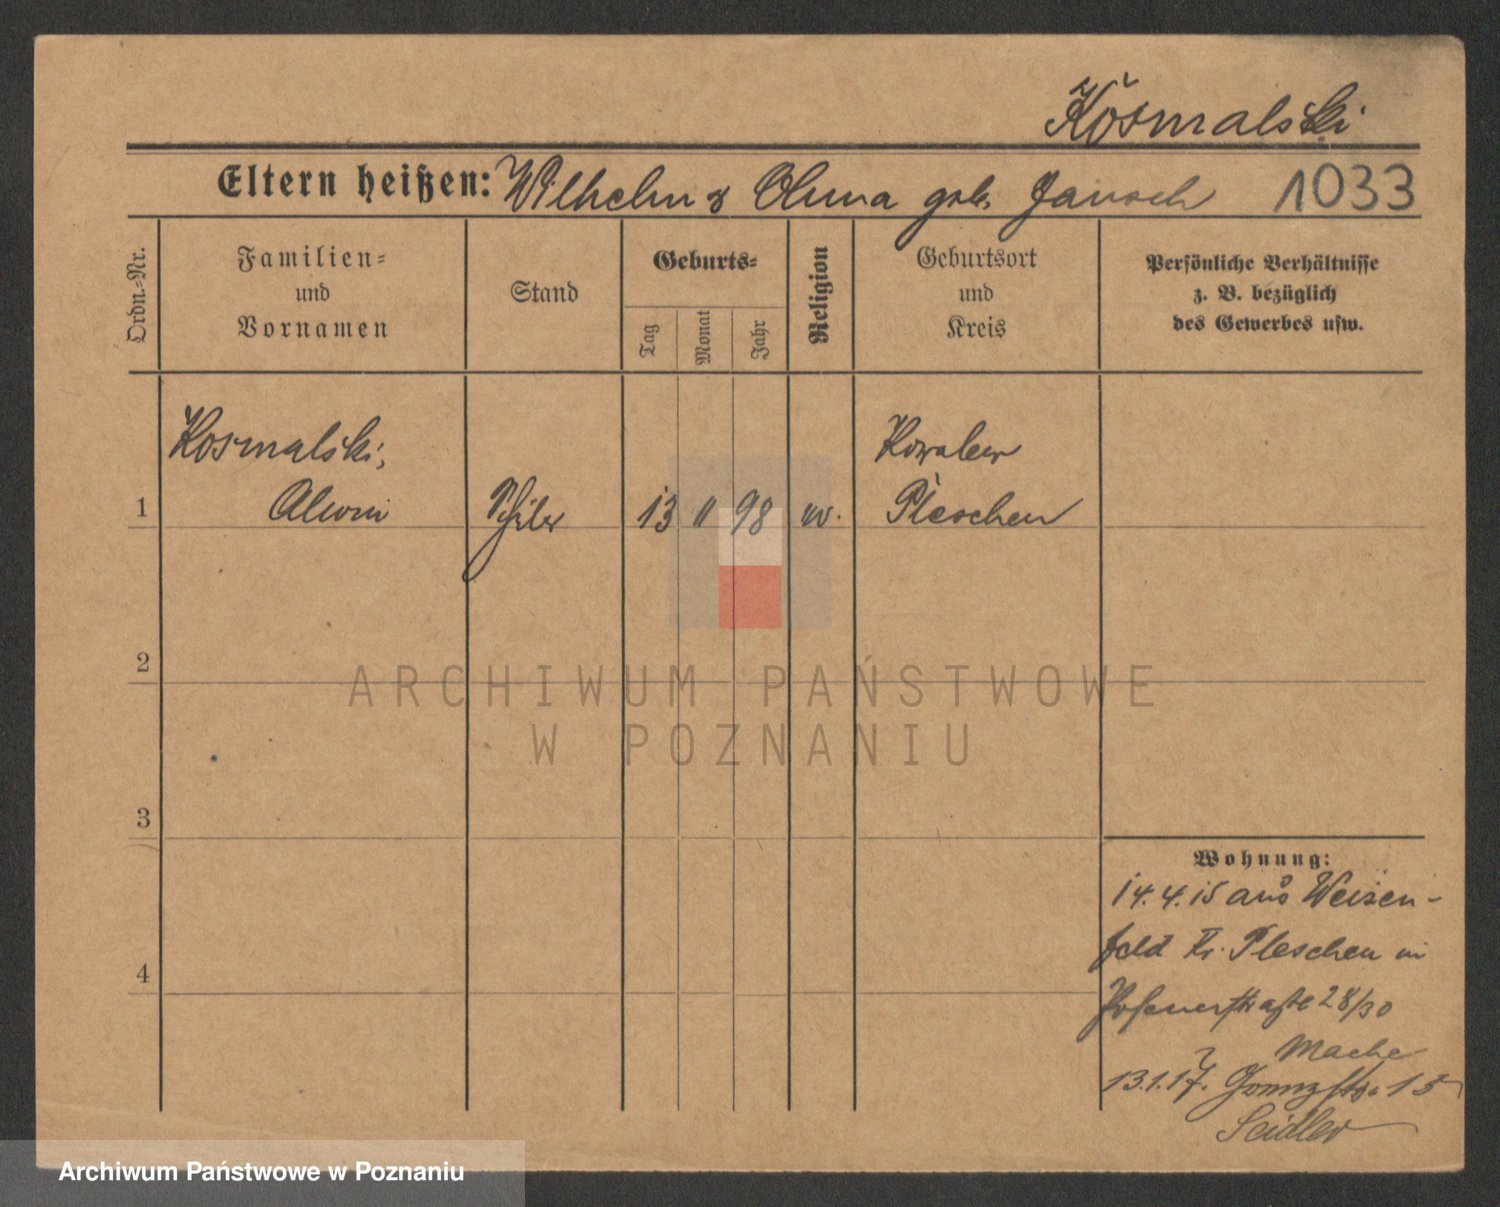 Kosmalski
Eltern heißen: Wilhelm & geb. Jausch 1033
Ordn.-Nr.
Familien-
und
Vornamen
Stand
Geburts-
Tag
Monat
Jahr
Religion
Geburtsort
und
Kreis
Persönliche Verhältnisse
z. B. bezüglich
des Gewerbes usw.
Kosmalski,
Kowalew
1 Alwin Schüler 13 11 98 ev. Pleschen
2
ARCHIWUM PAŃSTWOWE
W POZNANIU
3
Wohnung:
14.4.15 aus Weisen-
feld Kr. Pleschen in
4
Posenerstraße 28/30
Mache
13.1.17. 15
Seidler
Archiwum Państwowe w Poznaniu